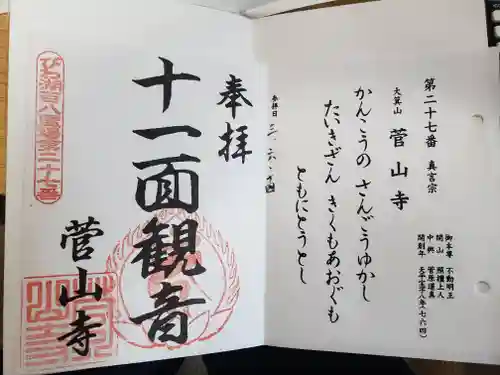 第二十七番 真言宗
大箕山 菅山寺
御本尊 不動明王
開山 照檀上人
中興 菅原道真
開刻年 天平宝字八年(七六四)
かんこうの さんごうゆかし
たいきざん きくもあおぐも
ともにとうとし
参拝日
奉拝
十一面観音
菅山寺
びわ湖百八霊場第二十七番